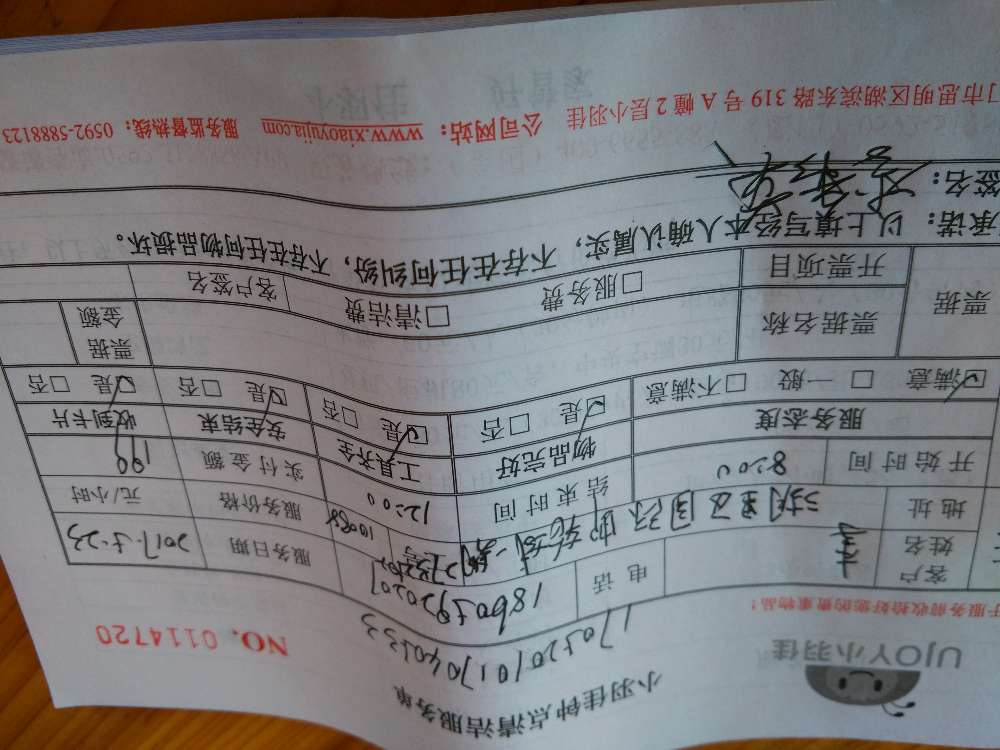 小羽佳钟点清洁服务单
UJOY小羽佳
NO. 0114720
于服务前收拾好您的贵重物品！
客户姓名
电话
服务日期 2017.5.23
地址
服务价格 元/小时
开始时间 8:00 结束时间 12:00 实付金额 190
服务态度 物品完好 工具齐全 安全结束 收到卡片
☑满意 □一般 □不满意 ☑是 □否 ☑是 □否 ☑是 □否 ☑是 □否
票据 票据名称 □服务费 □清洁费 票据金额
开票项目 客户签名
承诺：以上填写经本人确认属实，不存在任何纠纷，不存在任何物品损坏。
签名：
门市思明区湖滨东路 319 号 A 幢 2 层小羽佳 公司网站：www.xiaoyujia.com 服务监督热线：0592-5888123